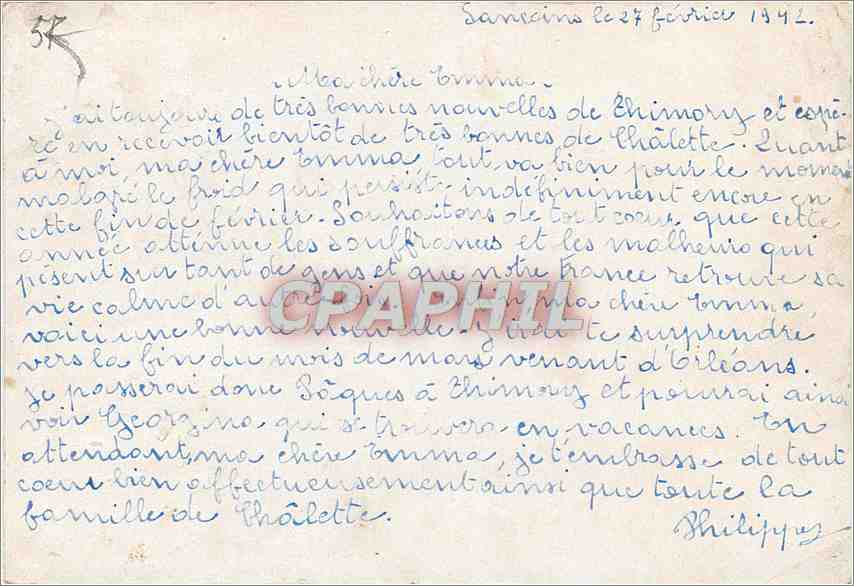 57
Sancoins le 27 février 1942.
Ma chère Emma.
J'ai toujours de très bonnes nouvelles de Thimory et espè-
re en recevoir bientôt de très bonnes de Châlette. Quant
à moi, ma chère Emma tout va bien pour le moment
malgré le froid qui persiste indéfiniment encore en
cette fin de février. Souhaitons de tout coeur que cette
année atténue les souffrances et les malheurs qui
pèsent sur tant de gens et que notre France retrouve sa
vie calme d'au ma chère Emma,
voici une bonne nouvelle. J'irai te surprendre
vers la fin du mois de mars venant d'Orléans.
Je passerai donc Pâques à Thimory et pourrai ainsi
voir Georgina qui se trouvera en vacances. En
attendant, ma chère Emma, je t'embrasse de tout
coeur bien affectueusement ainsi que toute la
famille de Châlette.
Philippe
CPAPHIL